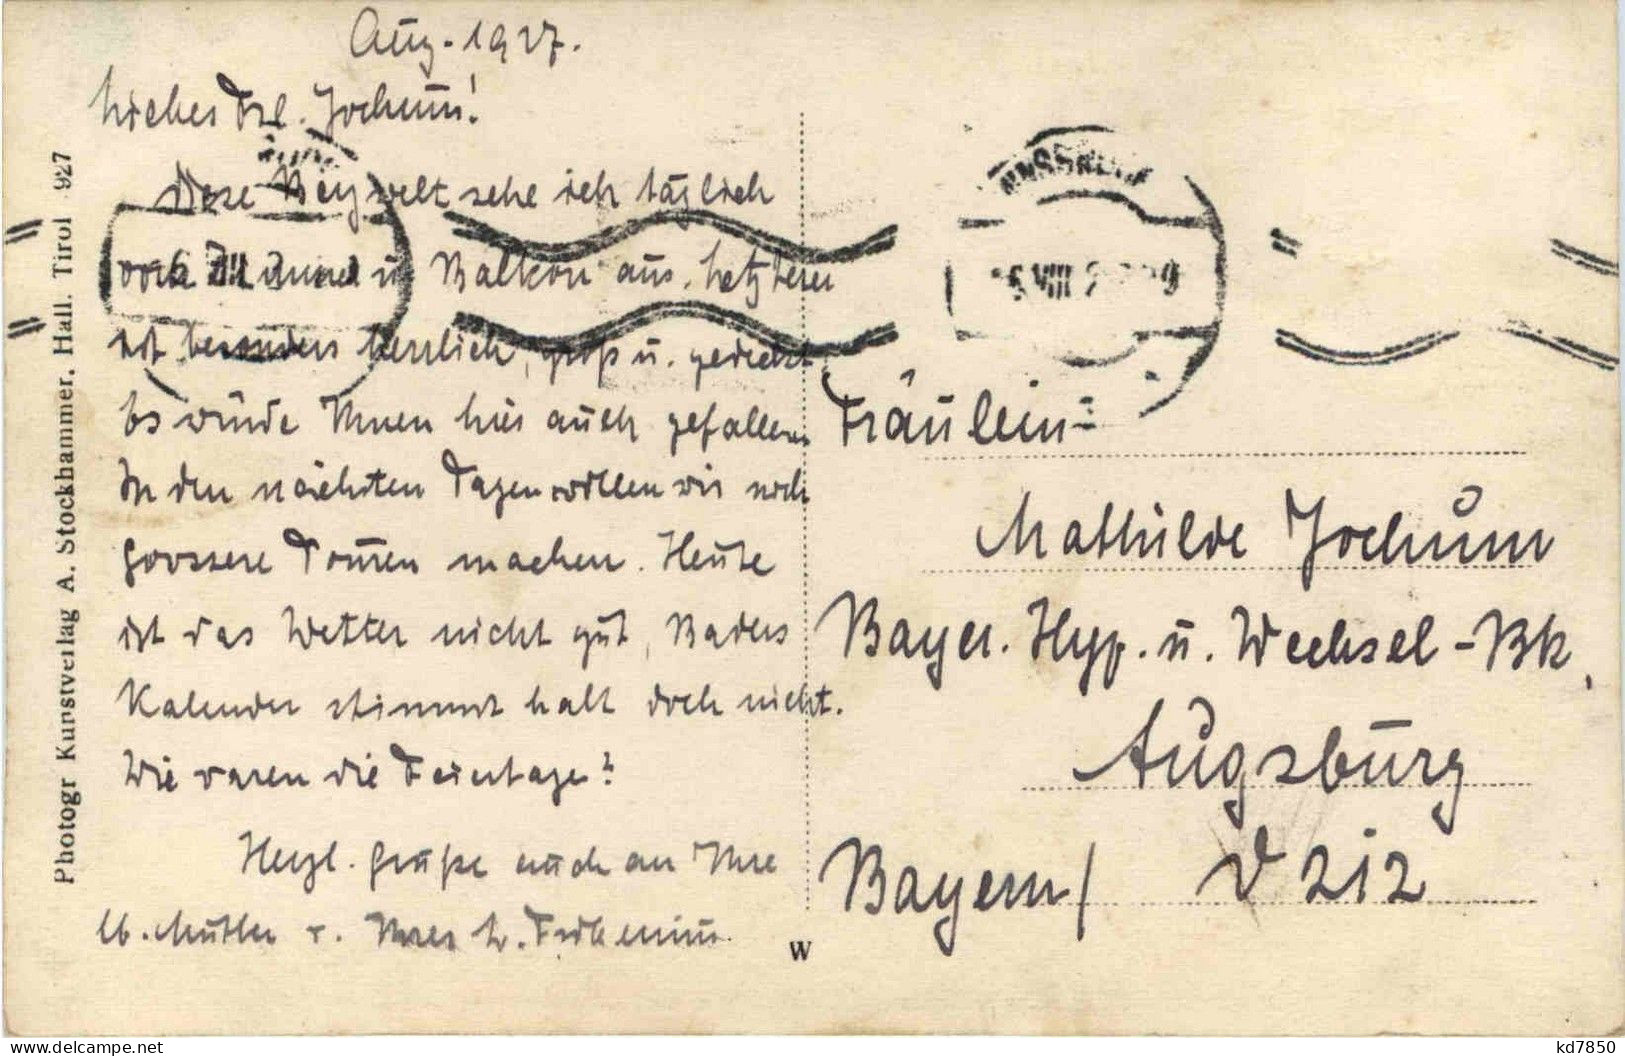 Aug. 1927.
Liebes Frl. Jochum!
Diese Bergwelt sehe ich täglich
vom Zimmer u Balkon aus. Letzterer
ist besonders herrlich, groß u. gedeckt.
Es würde Ihnen hier auch gefallen
In den nächsten Tagen wollen wir noch
grossere Touren machen. Heute
ist das Wetter nicht gut, Baders
Kalender stimmt halt doch nicht.
Wie waren die Feiertage?
Herzl. Grüße auch an Ihre
lb. Mutter v. Ihrer
INNSBRUCK
VIII
Fräulein
Mathilde Jochum
Bayer. Hyp. u. Wechsel-Bk,
Augsburg
Bayern/ D 212
W
Photogr Kunstverlag A. Stockhammer, Hall. Tirol 927
https://www.delcampe.net
kd7850